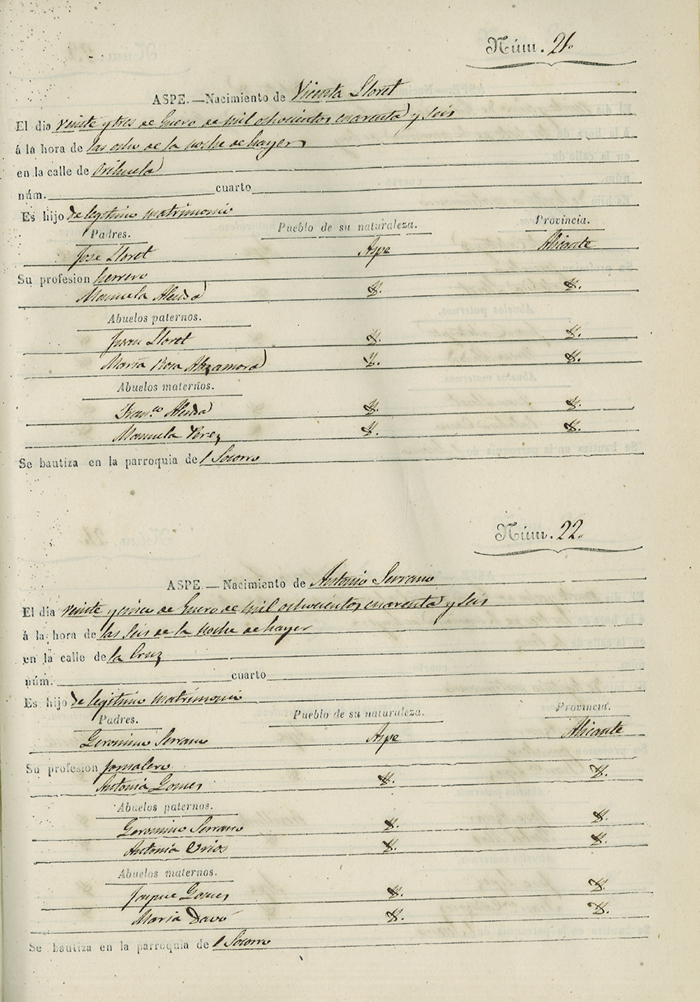 Núm. 21.
ASPE.—Nacimiento de Vicenta Lloret
El dia veinte y tres de Enero de mil ochocientos cuarenta y seis
á la hora de las ocho de la noche de hayer
en la calle de Orihuela
núm. cuarto
Es hijo de legitimo matrimonio
Padres. Pueblo de su naturaleza. Provincia.
Jose Lloret Aspe Alicante
Su profesion herrero
Manuela Alenda id. id.
Abuelos paternos.
Juan Lloret id. id.
Maria Rosa Alzamora id. id.
Abuelos maternos.
Fran.co Alenda id. id.
Manuela Perez id. id.
Se bautiza en la parroquia de l Socorro
Núm. 22.
ASPE.—Nacimiento de Antonio Serrano
El dia veinte y cinco de Enero de mil ochocientos cuarenta y seis
á la hora de las seis de la noche de hayer
en la calle de la Cruz
núm. cuarto
Es hijo de legitimo matrimonio
Padres. Pueblo de su naturaleza. Provincia.
Geronimo Serrano Aspe Alicante
Su profesion jornalero
Antonia Gomes id. id.
Abuelos paternos.
Geronimo Serrano id. id.
Antonia Urios id. id.
Abuelos maternos.
Gomes id. id.
Maria Davó id. id.
Se bautiza en la parroquia de l Socorro